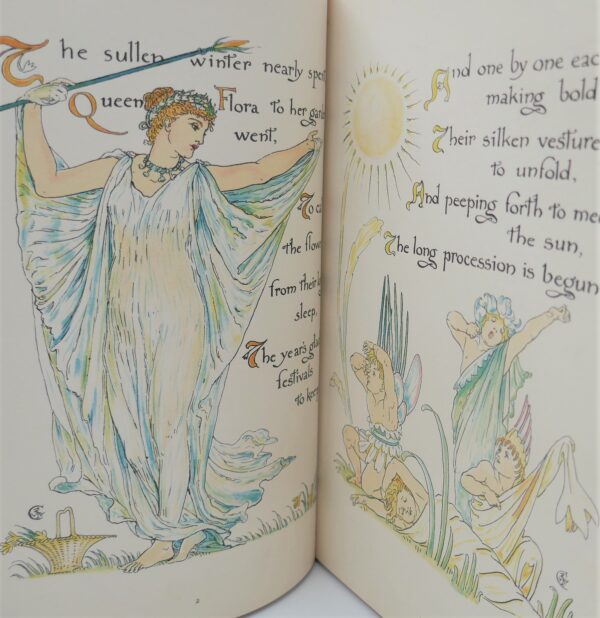 The sullen winter nearly spent
Queen Flora to her gard
went,
To ca
the flow
from their
sleep,
The year's gla
festivals
to keep
2
And one by one eac
making bold
Their silken vesture
to unfold,
And peeping forth to mee
the sun,
The long procession is begun